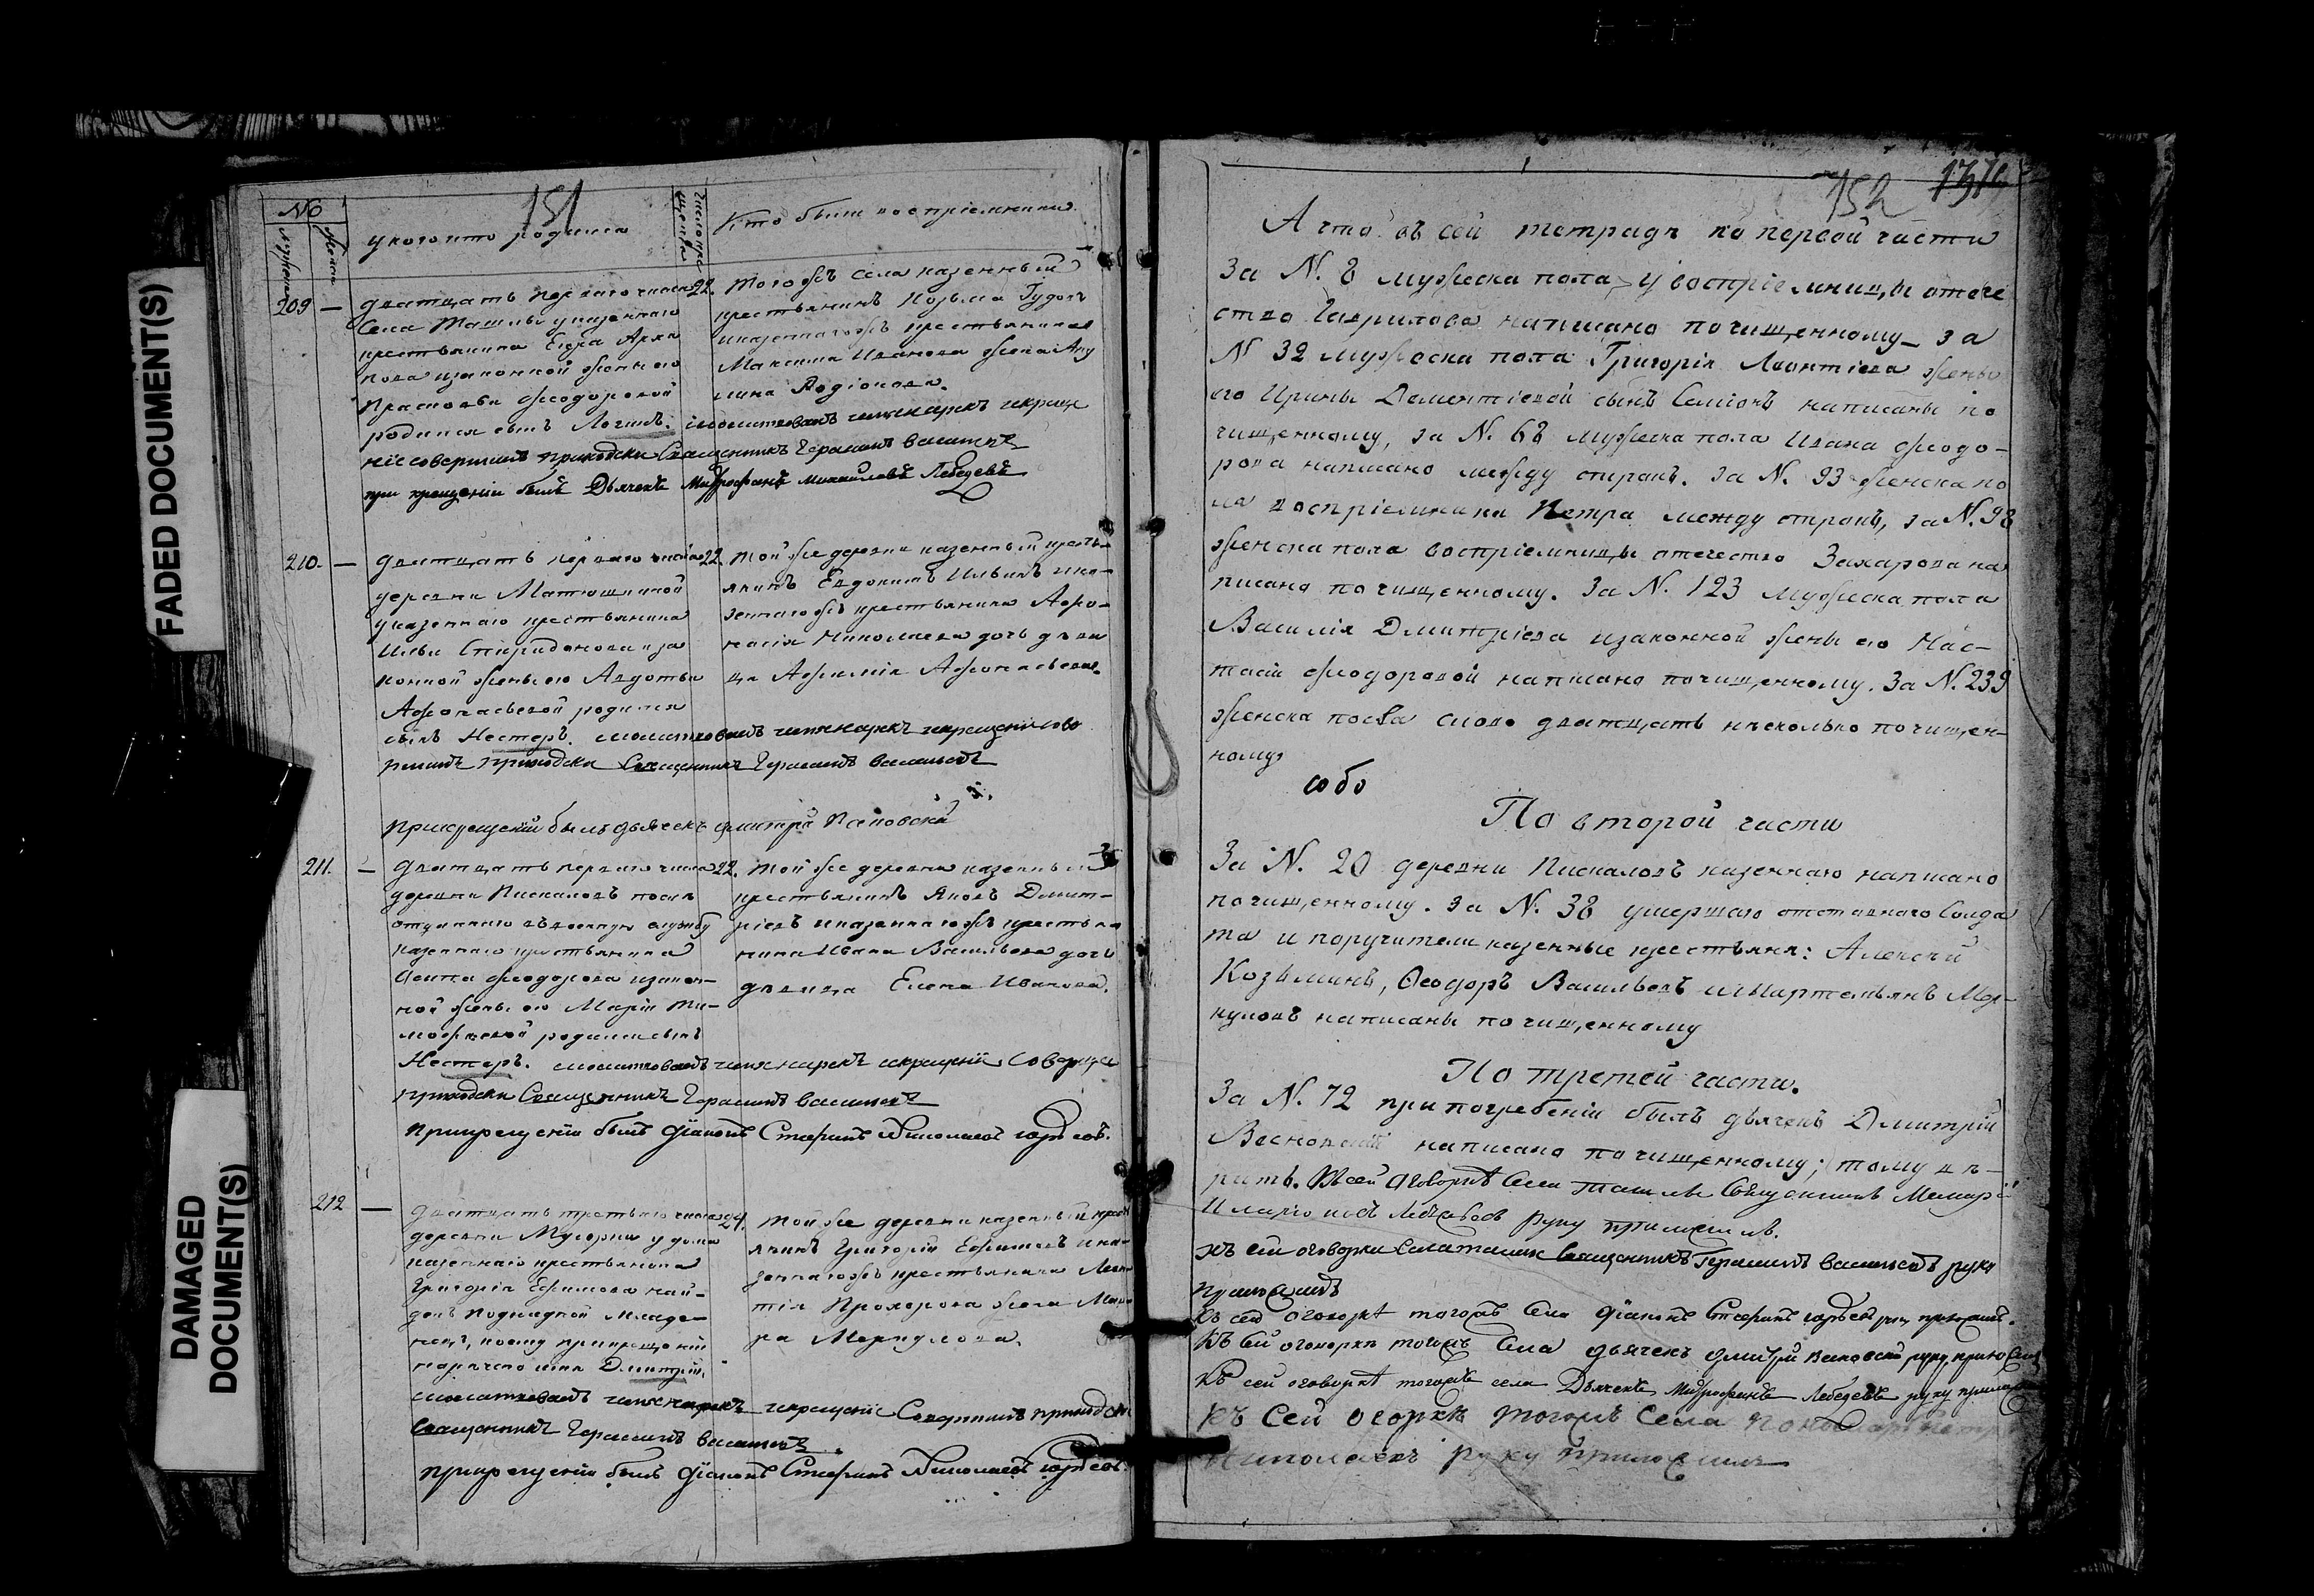 FADED DOCUMENT(S)
DAMAGED
DOCUMENT(S)
151
№
Мужеска
Женска
У кого кто родился
Число крещенія
Кто были воспріемники
209 —
дватцать перваго числа
Села Ташлы у казеннаго
крестьянина Егора Архи
пова и законной жены его
Прасковьи Феодоровой
родился сынъ Логинъ.
22. того жъ села казенный
крестьянинъ Козьма
и казеннаго жъ крестьянина
Максима Иванова жена Аку
лина Родіонова.
молитвовалъ имя нарекъ и креще
ніе совершилъ приходскій Священникъ Герасимъ Васильевъ
при крещеніи былъ Дьячекъ Митрофанъ Михайловъ Лебедевъ
210. —
двадцать перваго числа
деревни Матюшкиной
у казеннаго крестьянина
Ильи Спиридонова и за
конной жены его Авдотьи
Афонасьевой родился
сынъ Нестеръ.
22. той же деревни казенный кресть-
янинъ Евдокимъ Ильинъ и ка-
зеннаго жъ крестьянина Афо-
насія Николаева дочь дѣви
ца Афимія Афонасьева.
молитвовалъ имя нарекъ и крещеніе сове
ршилъ приходскій Священникъ Герасимъ Васильевъ
при крещеніи былъ дьячекъ Дмитрій
211. —
двадцать перваго числа
деревни Пискаловъ послѣ
отданнаго въ военную службу
казеннаго крестьянина
Осипа Феодорова и закон-
ной жены его Маріи Ти-
мофѣевой родился сынъ
Нестеръ.
22. той же деревни казенный
крестьянинъ Яковъ Дмит-
ріевъ и казеннаго жъ крестьян
нина Ивана Васильева дочь
дѣвица Елена Иванова.
молитвовалъ имя нарекъ и крещеніе соверши
приходскій Священникъ Герасимъ Васильевъ
при крещеніи былъ діаконъ Стефанъ Николаевъ
212 —
двадцать третьяго числа
деревни Мусорки у дома
казеннаго крестьянина
Григорія Ефимова най-
денъ подкидной младе-
нецъ, коему при крещеніи
наречено имя Дмитрій.
24. той же деревни казенный крест
янинъ Григорій Ефимовъ и ка-
зеннаго жъ крестьянина Леон
тія Прохорова жена
ра Меркулова.
молитвовалъ имя нарекъ и крещеніе Совершилъ приходскій
Священникъ Герасимъ Васильевъ.
при крещеніи былъ діаконъ Стефанъ Николаевъ
152
А что въ сей тетради по первой части
За N. 8 мужеска пола у воспріемницы отече
ство Гаврилова написано по чищенному – за
N 32 мужеска пола Григорія Леонтіева жены
его Ирины Дементіевой сынъ Семіонъ написаны по
чищенному, за N. 68 мужеска пола Ивана Феодо-
рова написано между строкъ. за N. 93 женска по
ла воспріемника Петра между строкъ, за N. 98
женска пола воспріемницы отечество Захарова на
писано по чищенному. За N. 123 мужеска пола
Василія Дмитріева и законной жены его Нас-
тасіи Феодоровой написано по чищенному. За N. 239
женска пола слово двадцать нѣсколько по чищен-
ному
По второй части
За N. 20 деревни Пискаловъ казеннаго написано
по чищенному. за N. 38 умершаго отставнаго Солда
та и поручители казенные крестьяне: Алексѣй
Козьминъ, Феодоръ Васильевъ и Мартемьянъ Мер-
куловъ написаны по чищенному
По третей части.
За N. 72 при погребеніи былъ дьячекъ Дмитрій
написано по чищенному; тому вѣ-
рить. Къ сей оговоркѣ Села Ташлы Священникъ
руку приложилъ.
къ сей оговорки Села Ташлы Священникъ Герасимъ Васильевъ руку
приложилъ
Къ сей оговоркѣ тогожъ Села діаконъ Стефанъ руку приложилъ.
Къ сей оговорке тогожъ Села дьячекъ Дмитрій руку приложилъ
Къ сей оговоркѣ тогожъ села Дьячекъ Митрофанъ Лебедевъ руку приложилъ
Къ Сей тогожъ Села пономарь Петръ
Николаевъ руку приложилъ